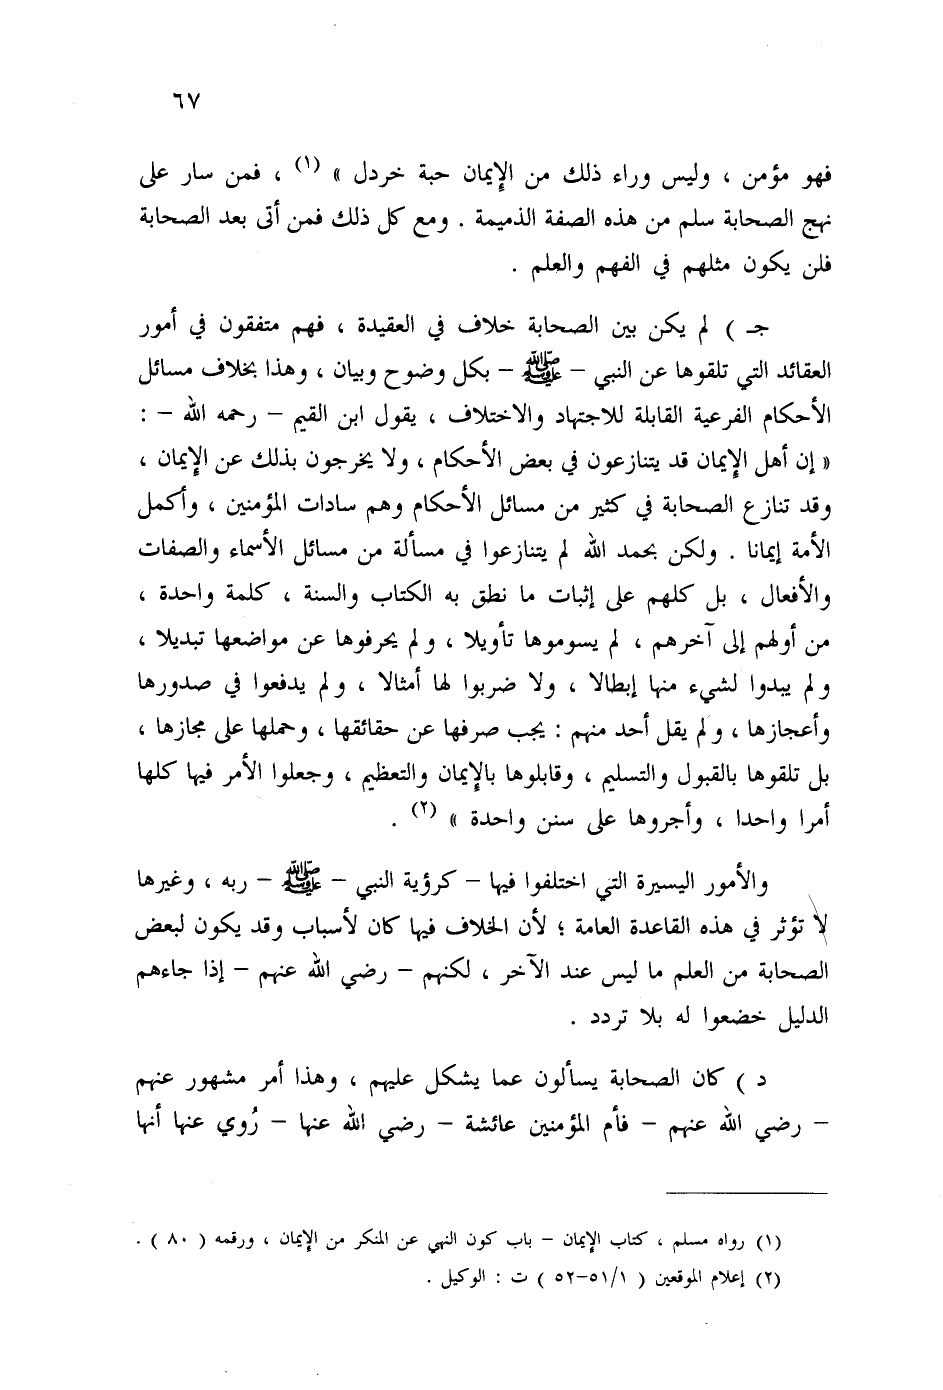 ٦٧
فهو مؤمن ، وليس وراء ذلك من الإيمان حبة خردل » (١) ، فمن سار على
نهج الصحابة سلم من هذه الصفة الذميمة . ومع كل ذلك فمن أتى بعد الصحابة
فلن يكون مثلهم في الفهم والعلم .
جـ ) لم يكن بين الصحابة خلاف في العقيدة ، فهم متفقون في أمور
العقائد التي تلقوها عن النبي – ﷺ – بكل وضوح وبيان ، وهذا بخلاف مسائل
الأحكام الفرعية القابلة للاجتهاد والاختلاف ، يقول ابن القيم – رحمه الله – :
« إن أهل الإيمان قد يتنازعون في بعض الأحكام ، ولا يخرجون بذلك عن الإيمان ،
وقد تنازع الصحابة في كثير من مسائل الأحكام وهم سادات المؤمنين ، وأكمل
الأمة إيمانا . ولكن بحمد الله لم يتنازعوا في مسألة من مسائل الأسماء والصفات
والأفعال ، بل كلهم على إثبات ما نطق به الكتاب والسنة ، كلمة واحدة ،
من أولهم إلى آخرهم ، لم يسوموها تأويلا ، ولم يحرفوها عن مواضعها تبديلا ،
ولم يبدوا لشيء منها إبطالا ، ولا ضربوا لها أمثالا ، ولم يدفعوا في صدورها
وأعجازها ، ولم يقل أحد منهم : يجب صرفها عن حقائقها ، وحملها على مجازها ،
بل تلقوها بالقبول والتسليم ، وقابلوها بالإيمان والتعظيم ، وجعلوا الأمر فيها كلها
أمرا واحدا ، وأجروها على سنن واحدة » (٢) .
والأمور اليسيرة التي اختلفوا فيها – كرؤية النبي – ﷺ – ربه ، وغيرها
لا تؤثر في هذه القاعدة العامة ؛ لأن الخلاف فيها كان لأسباب وقد يكون لبعض
الصحابة من العلم ما ليس عند الآخر ، لكنهم – رضي الله عنهم – إذا جاءهم
الدليل خضعوا له بلا تردد .
د ) كان الصحابة يسألون عما يشكل عليهم ، وهذا أمر مشهور عنهم
– رضي الله عنهم – فأم المؤمنين عائشة – رضي الله عنها – رُوي عنها أنها
(١) رواه مسلم ، كتاب الإيمان – باب كون النهي عن المنكر من الإيمان ، ورقمه ( ٨٠ ) .
(٢) إعلام الموقعين ( ٥١/١–٥٢ ) ت : الوكيل .